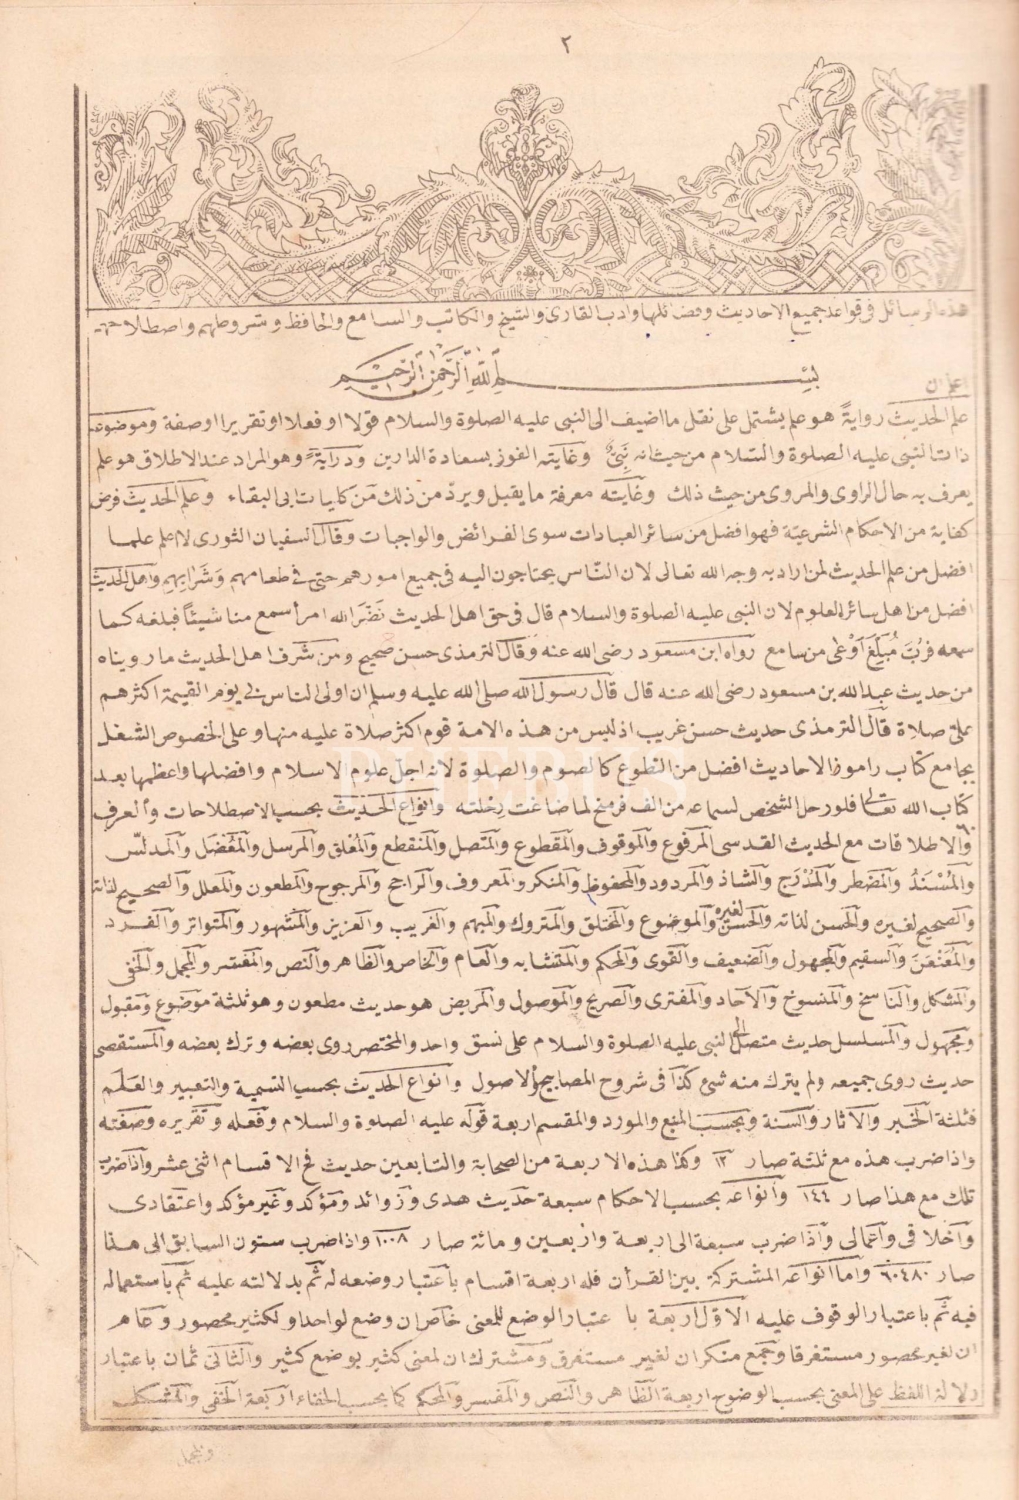 ٢
هذه الرسائل فى قواعد جميع الاحاديث وفضائلها وادب القارئ والشيخ والكاتب والسامع والحافظ وشروطهم واصطلاحهم
بسم الله الرحمن الرحيم
اعلم ان
علم الحديث روايةً هو علم يشتمل على نقل ما اضيف الى النبى عليه الصلوة والسلام قولا او فعلا او تقريرا او صفة وموضوعه
ذات النبى عليه الصلوة والسلام من حيث انه نبىٌّ وغايته الفوز بسعادة الدارين ودرايةً وهو المراد عند الاطلاق هو علم
يعرف به حال الراوى والمروى من حيث ذلك وغايته معرفة ما يقبل ويردّ من ذلك من كليات ابى البقاء وعلم الحديث فرض
كفاية من الاحكام الشرعيّة فهو افضل من سائر العبادات سوى الفرائض والواجبات وقال السفيان الثورى لا اعلم علما
افضل من علم الحديث لمن اراد به وجه الله تعالى لان النّاس يحتاجون اليه فى جميع امورهم حتى فى طعامهم وشرابهم واهل الحديث
افضل من اهل سائر العلوم لان النبى عليه الصلوة والسلام قال فى حق اهل الحديث نضّر الله امرأ سمع منا شيئاً فبلغه كما
سمعه فربّ مُبلَّغ اَوْعٰى من سامع رواه ابن مسعود رضى الله عنه وقال الترمذى حسن صحيح ومن شرف اهل الحديث ما رويناه
من حديث عبد الله بن مسعود رضى الله عنه قال قال رسول الله صلى الله عليه وسلم ان اولى الناس بى يوم القيمة اكثرهم
علىّ صلاة قال الترمذى حديث حسن غريب اذ ليس من هذه الامة قوم اكثر صلاة عليه منها وعلى الخصوص الشغل
بجامع كتاب راموز الاحاديث افضل من التطوع كالصوم والصلوة لانه اجلّ علوم الاسلام وافضلها واعظمها بعد
كتاب الله تعالى فلو رحل الشخص لسماعه من الف فرسخ لما ضاعت رحلته وانواع الحديث بحسب الاصطلاحات والعرف
والاطلاقات مع الحديث القدسى المرفوع والموقوف والمقطوع والمتصل والمنقطع والمعلق والمرسل والمعضل والمدلّس
والمُسْنَدُ والمضطر والمُدْرَج والشاذ والمردود والمحفوظ والمنكر والمعروف والراجح والمرجوح والمطعون والمعلل والصحيح لذاته
والصحيح لغيره والحسن لذاته والحسن لغيره والموضوع والمختلق والمتروك والمبهم والغريب والعزيز والمشهور والمتواتر والفرد
والمُعَنْعَن والسقيم والمجهول والضعيف والقوى والمحكم والمتشابه والعام والخاص والظاهر والنص والمفسر والمجمل والخفى
والمشكل والناسخ والمنسوخ والآحاد والمفترى والصريح والموصول والمريض هو حديث مطعون وهو ثلثة موضوع ومقبول
ومجهول والمسلسل حديث متصل الى النبى عليه الصلوة والسلام على نسق واحد والمختصر روى بعضه وترك بعضه والمستقصى
حديث روى جميعه ولم يترك منه شئ كذا فى شروح المصابيح والاصول وانواع الحديث بحسب التسمية والتعبير والعَلَم
فثلثة الخبر والآثار والسنة وبحسب المنبع والمورد والمقسم اربعة قوله عليه الصلوة والسلام وفعله وتقريره وصفته
واذا ضرب هذه مع ثلثة صار ١٢ وكذا هذه الاربعة من الصحابة والتابعين حديث فح الاقسام اثنى عشر واذا ضرب
تلك مع هذا صار ١٤٤ وانواعه بحسب الاحكام سبعة حديث هدى وزوائد ومؤكد وغير مؤكد واعتقادى
واخلاقى واعمالى واذا ضرب سبعة الى اربعة واربعين ومائة صار ١٠٠٨ واذا ضرب ستون السابق الى هذا
صار ٦٠٤٨٠ واما انواعه المشتركة بين القرأن فله اربعة اقسام باعتبار وضعه له ثم بدلالته عليه ثم باستعماله
فيه ثم باعتبار الوقوف عليه الاوّل اربعة باعتبار الوضع للمعنى خاص ان وضع لواحد او لكثير محصور وعام
ان لغير محصور مستغرقا وجمع منكر ان لغير مستغرق ومشترك ان لمعنى كثير بوضع كثير والثانى ثمان باعتبار
دلالة اللفظ على المعنى بحسب الوضوح اربعة الظاهر والنص والمفسر والمحكم كما بحسب الخفاء اربعة الخفى والمشكل
والمجمل
PHEBUS